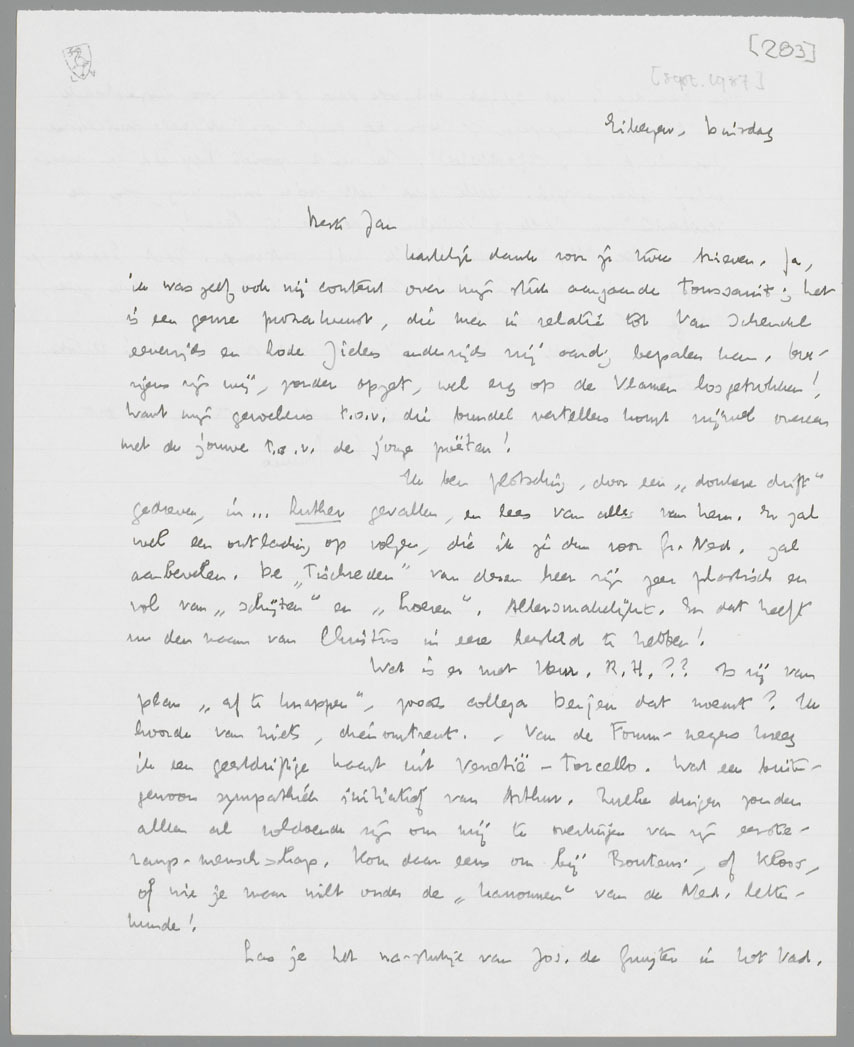 [283]
[Sept. 1937]
Eibergen, Dinsdag
Beste Jan
hartelijk dank voor je twee brieven. Ja,
ik was zelf ook vrij content over mijn stuk aangaande Toussaint; het
is een genre prozakunst, die men in relatie tot Van Schendel
eenerzijds en Lode Zielens anderzijds vrij aardig bepalen kan. Ove-
rigens zijn wij, zonder opzet, wel erg op de Vlamen losgetrokken!,
want mijn gevoelens t.o.v. die bundel vertellers komt vrijwel overeen
met de jouwe t.o.v. de jonge poëten!
Ik ben plotseling, door een „donkere drift"
gedreven, in... Luther gevallen, en lees van alles van hem. Er zal
wel een ontlading op volgen, die ik je dan voor Gr. Ned. zal
aanbevelen. De „Tischreden" van dezen heer zijn zeer plastisch en
vol van „schijten" en „hoeren". Allersmakelijkst. En dat heeft
nu den naam van Christus in eere hersteld te hebben!
Wat is er met Mevr. R.H.?? Is zij van
plan „af te knappen", zooals collega Benjen dat noemt? Ik
hoorde van niets, dienomtrent. – Van de Forum-negers kreeg
ik een geestdriftige kaart uit Venetië – Torcello. Wat een buiten-
gewoon sympathiek initiatief van Arthur. Zulke dingen zouden
alleen al voldoende zijn om mij te overtuigen van zijn eerste-
rangs-mensch-schap. Kom daar eens om bij Boutens, of Kloos,
of wie je maar wilt onder de „kanonnen" van de Ned. letter-
kunde!
Las je het na-stukje van Jos. de Gruyter in het Vad.